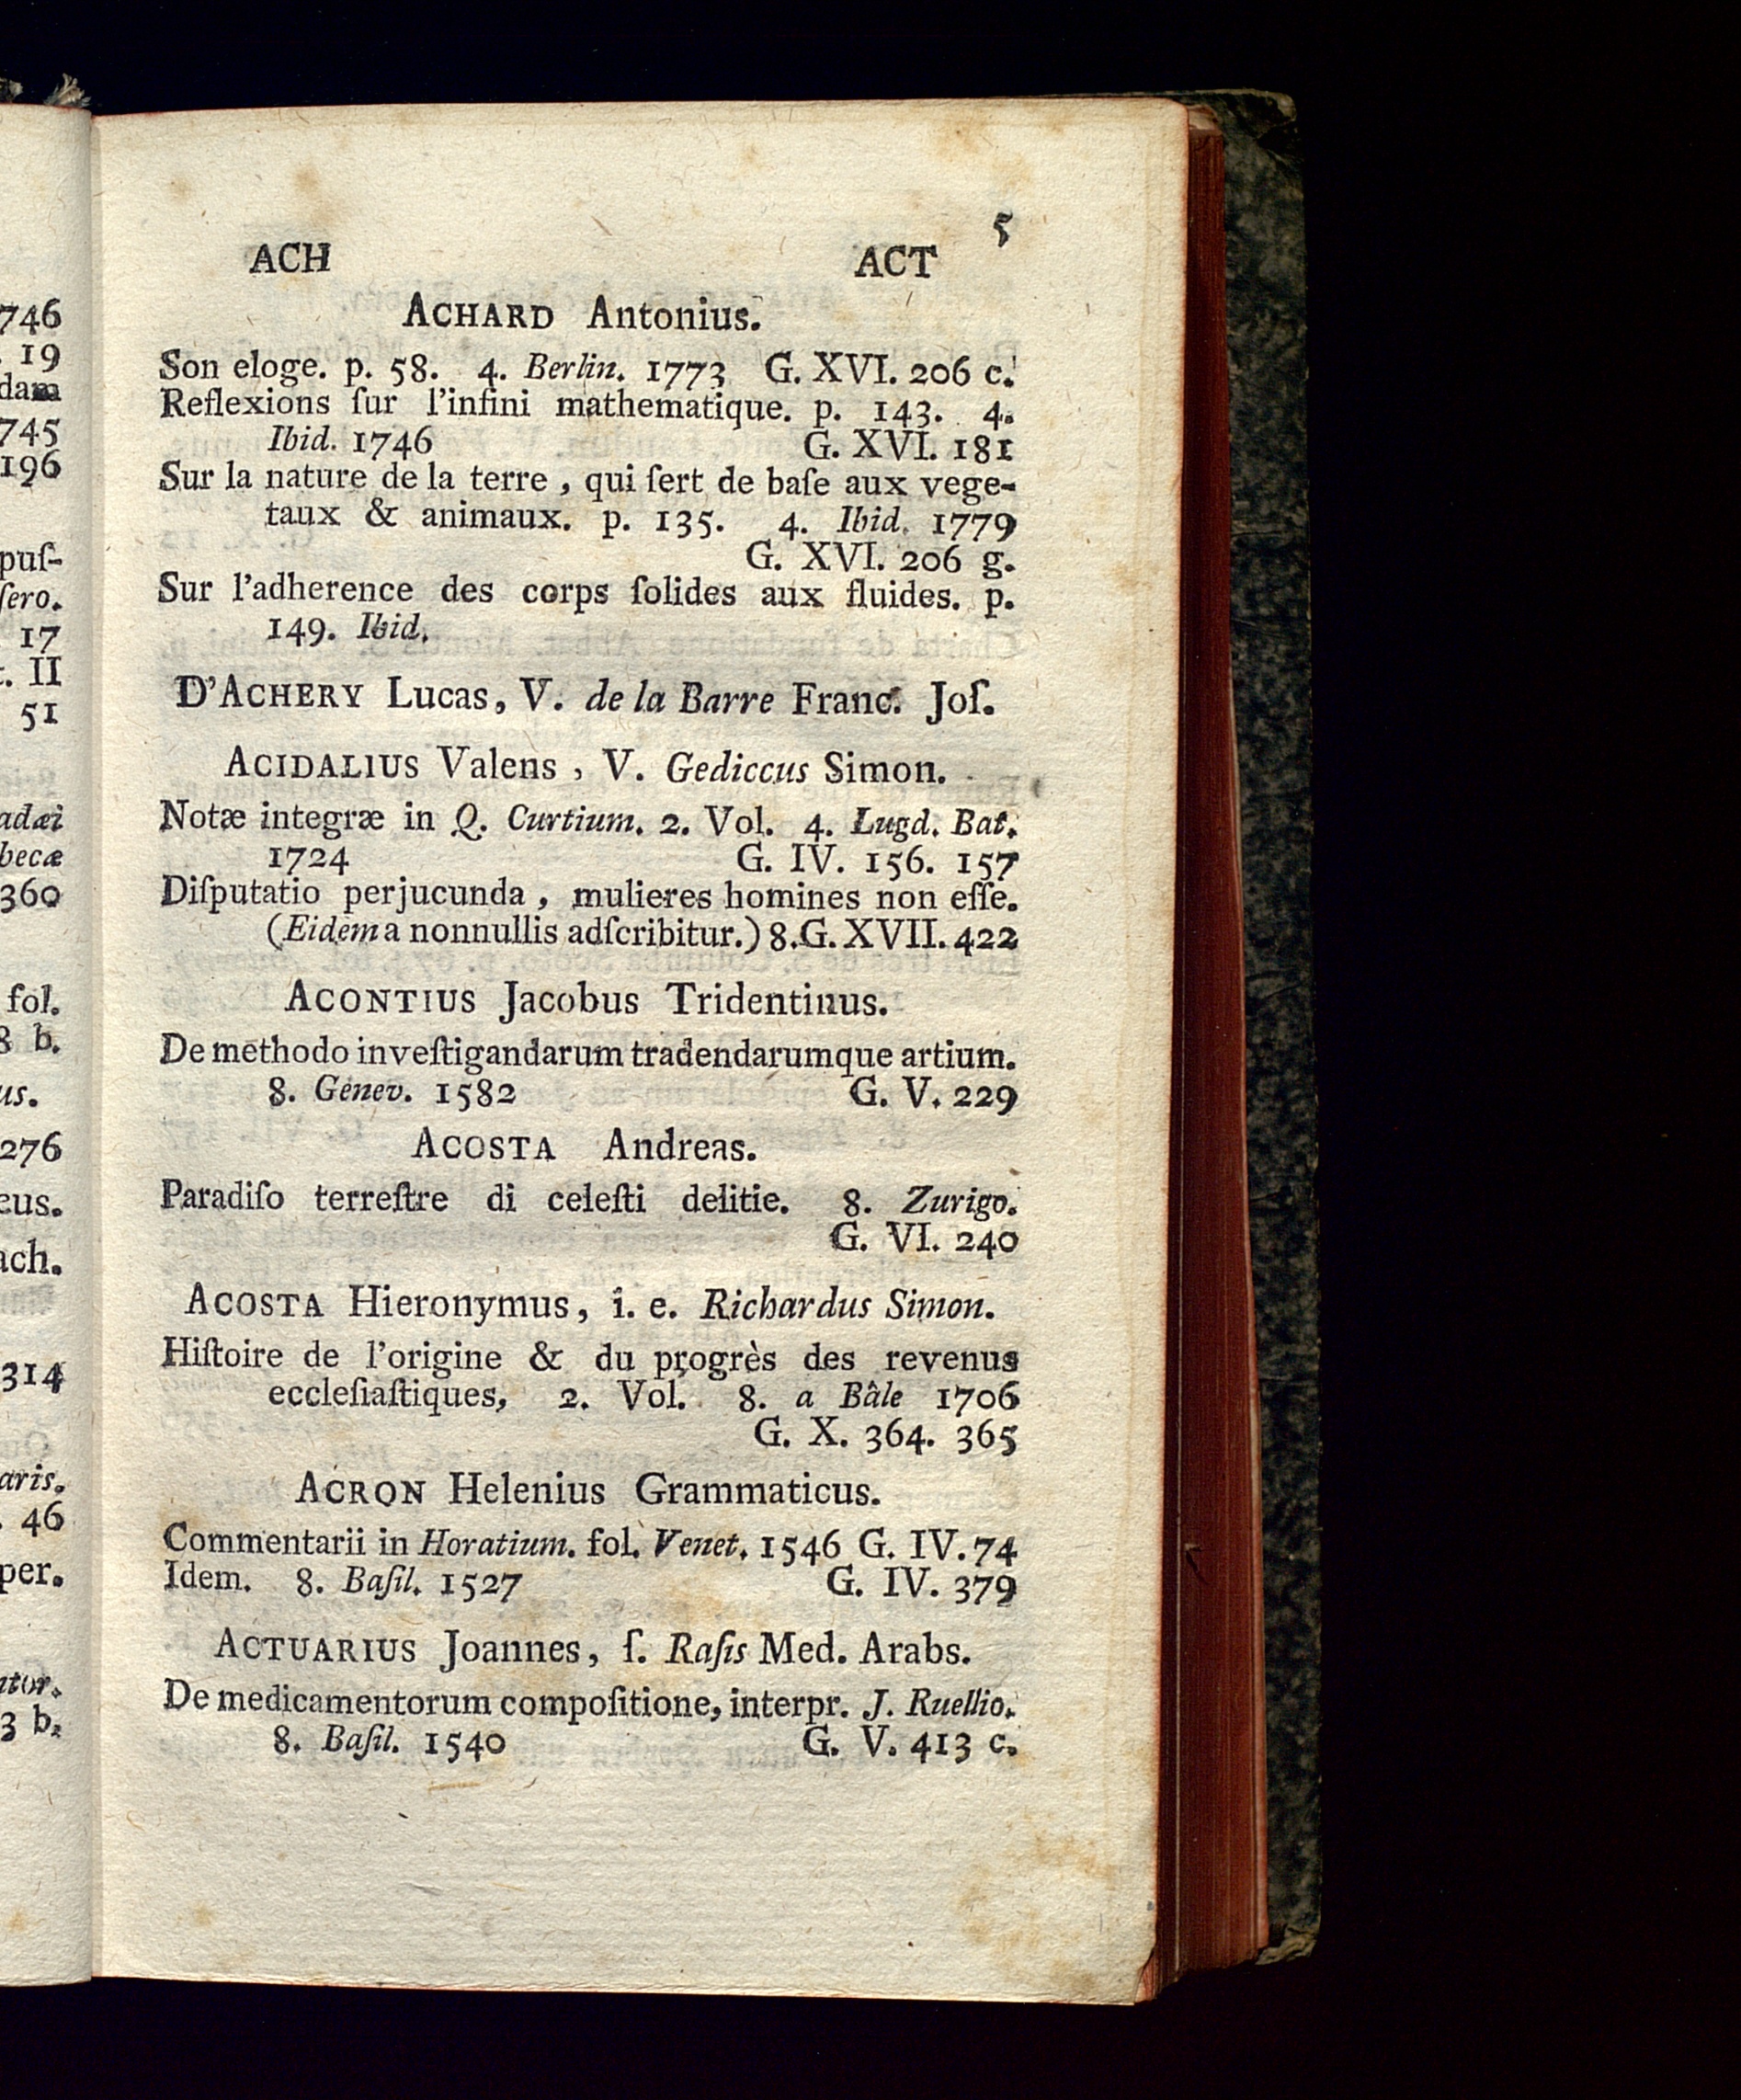 5
ACH ACT
ACHARD Antonius.
Son eloge. p. 58. 4. Berlin. 1773 G. XVI. 206 c.
Reflexions ſur l'infini mathematique. p. 143. 4.
Ibid. 1746 G. XVI. 181
Sur la nature de la terre, qui ſert de baſe aux vege-
taux & animaux. p. 135. 4. Ibid. 1779
G. XVI. 206 g.
Sur l'adherence des corps ſolides aux fluides. p.
149. Ibid.
D'ACHERY Lucas, V. de la Barre Franc. Joſ.
ACIDALIUS Valens, V. Gediccus Simon.
Notæ integræ in Q. Curtium. 2. Vol. 4. Lugd. Bat.
1724 G. IV. 156. 157
Diſputatio perjucunda, mulieres homines non eſſe.
(Eidem a nonnullis adſcribitur.) 8. G. XVII. 422
ACONTIUS Jacobus Tridentinus.
De methodo inveſtigandarum tradendarumque artium.
8. Genev. 1582 G. V. 229
ACOSTA Andreas.
Paradiſo terreſtre di celeſti delitie. 8. Zurigo.
G. VI. 240
ACOSTA Hieronymus, i. e. Richardus Simon.
Hiſtoire de l'origine & du progrès des revenus
eccleſiaſtiques, 2. Vol. 8. a Bâle 1706
G. X. 364. 365
ACRON Helenius Grammaticus.
Commentarii in Horatium. fol. Venet. 1546 G. IV. 74
Idem. 8. Baſil. 1527 G. IV. 379
ACTUARIUS Joannes, ſ. Raſis Med. Arabs.
De medicamentorum compoſitione, interpr. J. Ruellio.
8. Baſil. 1540 G. V. 413 c.